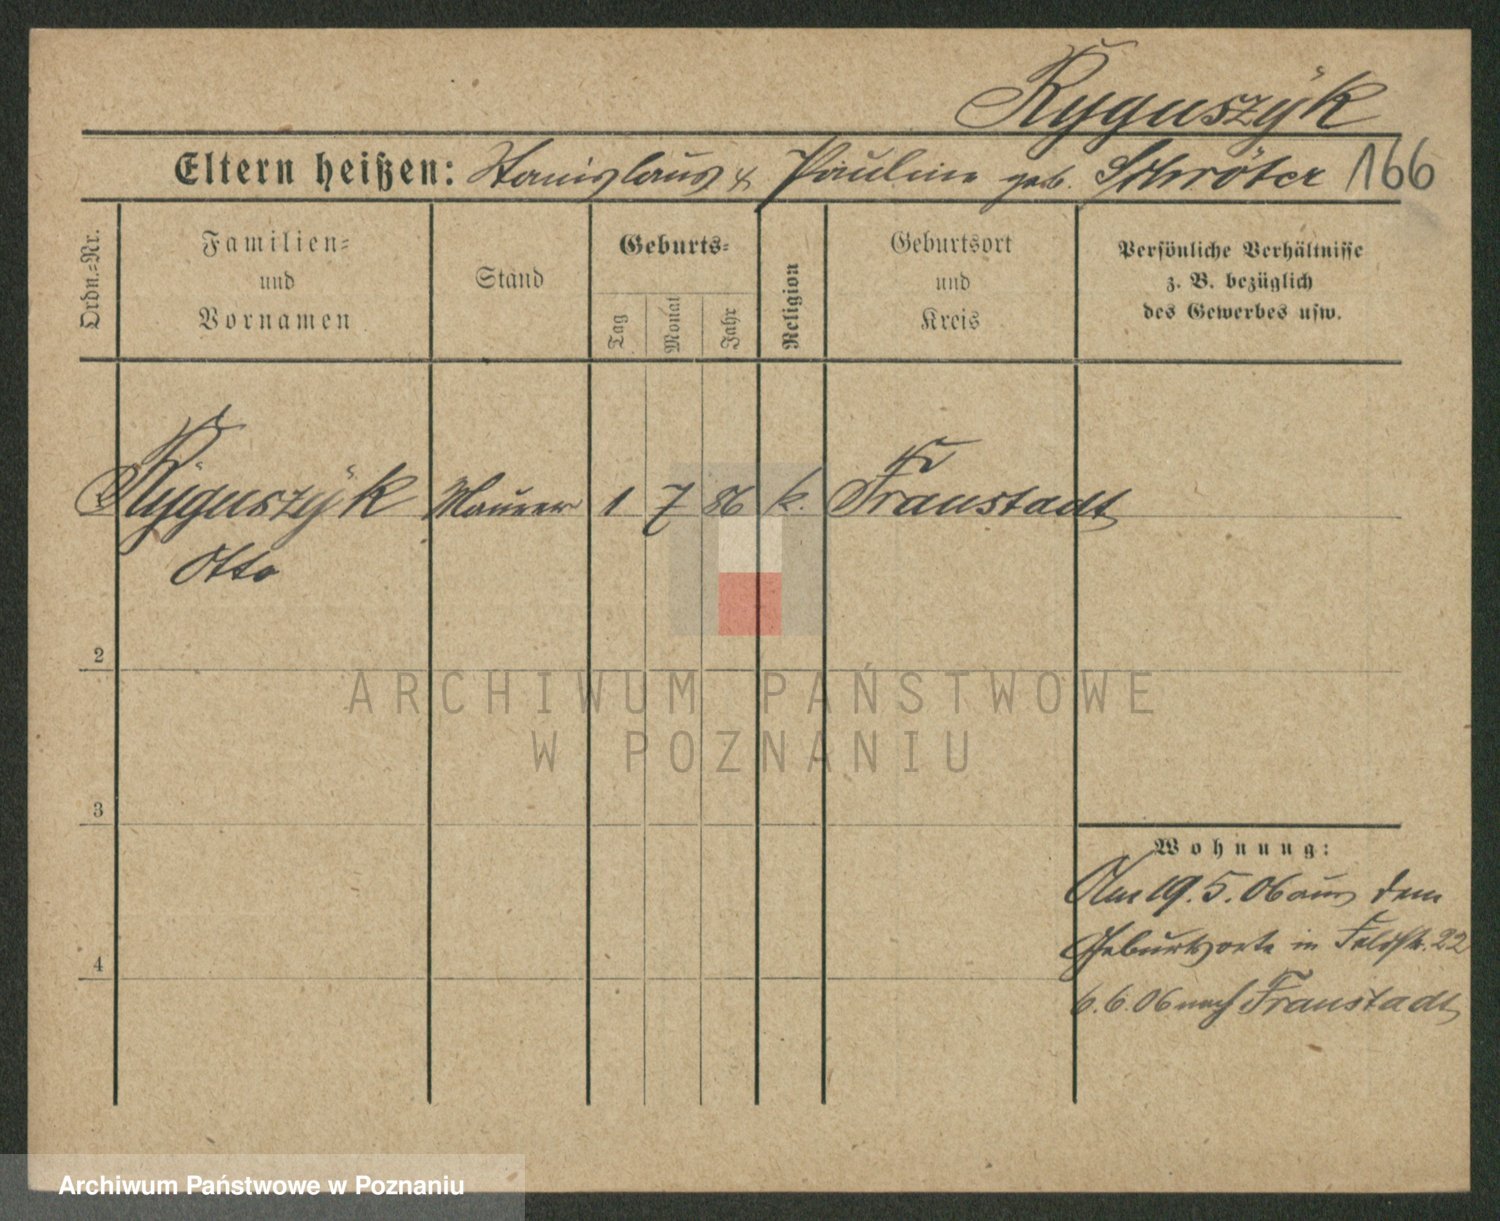 Ryguszÿk
Eltern heißen: Stanislaus & Pauline geb. Schröter 166
Ordn.=Nr.
Familien=
und
Vornamen
Stand
Geburts=
Tag
Monat
Jahr
Religion
Geburtsort
und
Kreis
Persönliche Verhältnisse
z. B. bezüglich
des Gewerbes usw.
Ryguszÿk Maurer 1 7 86 k. Fraustadt
Otto
2
3
4
Wohnung:
Am 19. 5. 06 aus dem
Geburtsorte in Feldstr. 22
6. 6. 06 nach Fraustadt
ARCHIWUM PAŃSTWOWE
W POZNANIU
Archiwum Państwowe w Poznaniu